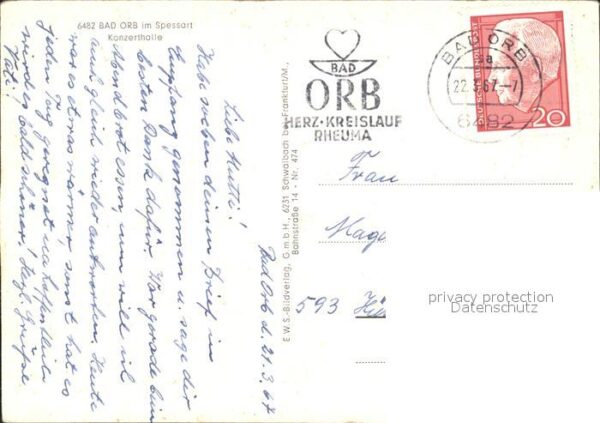 6482 BAD ORB im Spessart
Konzerthalle
Bad Orb d. 21.3.67
Liebe Mutti!
Habe soeben deinen Brief in
Empfang genommen u. sage dir
besten Dank dafür. War gerade beim
Abendbrot essen, nun will ich
auch gleich wieder antworten. Heute
war es etwas wärmer, sonst hat es
jeden Tag geregnet, na hoffentlich
wird es bald schöner! Herzl. Grüße
Vati!
E.W.S.-Bildverlag, G.m.b.H., 6231 Schwalbach bei Frankfurt/M.,
Bahnstraße 14 - Nr. 474
BAD
ORB
HERZ·KREISLAUF
RHEUMA
BAD ORB
a
22.3.67.-7
6482
DEUTSCHE BUNDESPOST
20
Frau
593
privacy protection
Datenschutz